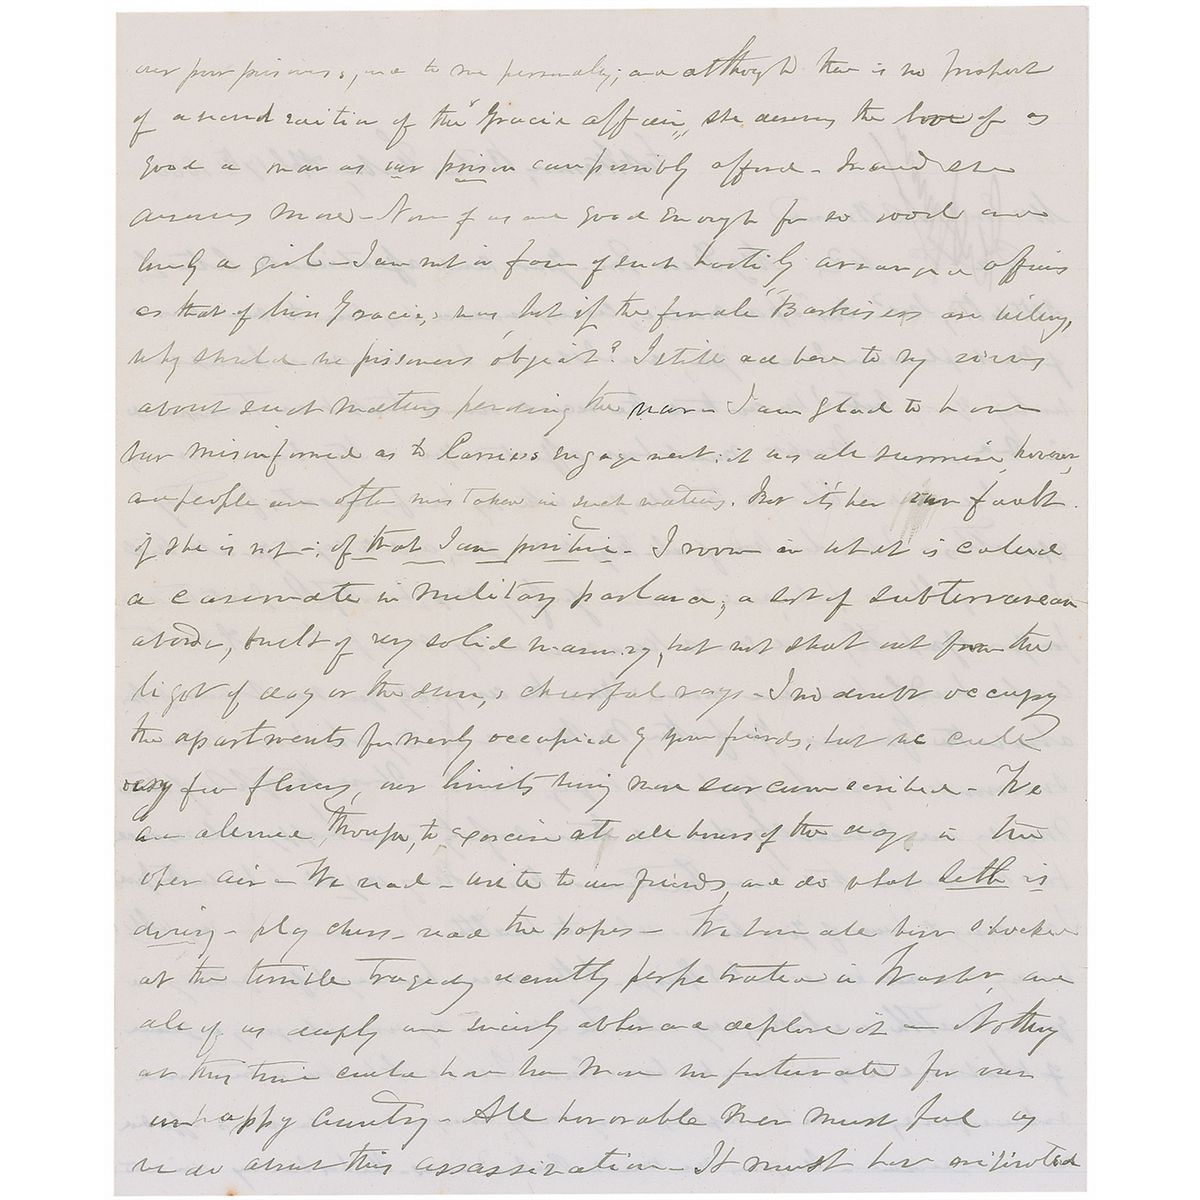 our poor prisoners, and to me personally; and although there is no prospect
of a second edition of the "Gracie affair", she deserves the love of as
good a man as our prison can possibly afford - Indeed she
deserves more - None of us are good enough for so good and
lovely a girl - I am not in favor of such hastily arranged affairs
as that of Miss Gracie's was, but if the female "Barkises are willing,
why should we prisoners object? I still adhere to my views
about such matters pending the war - I am glad to have
been misinformed as to Carrie's engagement: it was all surmise, however,
and people are often mistaken in such matters. But it's her own fault
if she is not -; of that I am positive - I room in what is called
a casemate in military parlance; a sort of subterranean
abode, built of very solid masonry, but not shut out from the
light of day or the sun's cheerful rays - I no doubt occupy
the apartments formerly occupied by your friends, but we cull
very few flowers, our limits being more circumscribed - We
are allowed, though, to exercise at all hours of the day in the
open air - We read - write to our friends, and do what Seth is
doing - play chess - read the papers - We have all been shocked
at the terrible tragedy recently perpetrated in Washn, and
all of us deeply and sincerely abhor and deplore it - Nothing
at this time could have been more unfortunate for our
unhappy country - All honorable men must feel as
we do about this assassination - It must have originated